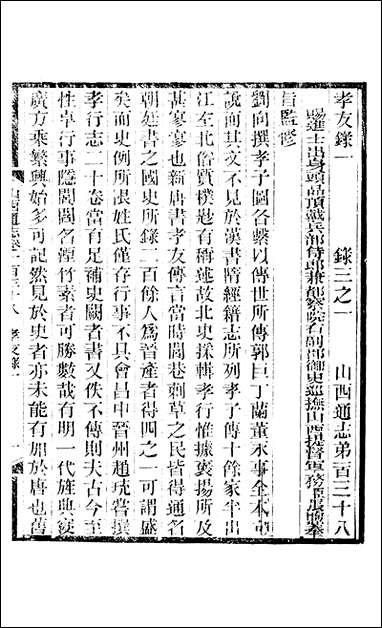 孝友錄一　　錄三之一　　山西通志弟百三十八
賜進士出身頭品頂戴兵部侍郎兼都察院右副都御史巡撫山西提督軍務
旨監修
劉向撰孝子圖各繫以傳世所傳郭巨丁蘭董永事全本
說而其文不見於漢書隋經籍志所列孝子傳十餘家半出
江左北俗質樸尠有稱述故北史採輯孝行惟據褒揚所及
甚寥寥也新唐書孝友傳言當時閭巷刺草之民皆得通名
朝廷書之國史所錄二百餘人爲晉產者得四之一可謂盛
矣而史例所張姓氏僅存行事不具會昌中晉州趙珫嘗撰
孝行志二十卷當有足補史闕者書又佚不傳則夫古今至
性卓行事隱閭閻名湮竹素者可勝數哉有明一代旌典寖
廣方乘繁興始多可記然見於史者亦未能有加於唐也舊
山西通志卷一百三十八　孝友錄一　一